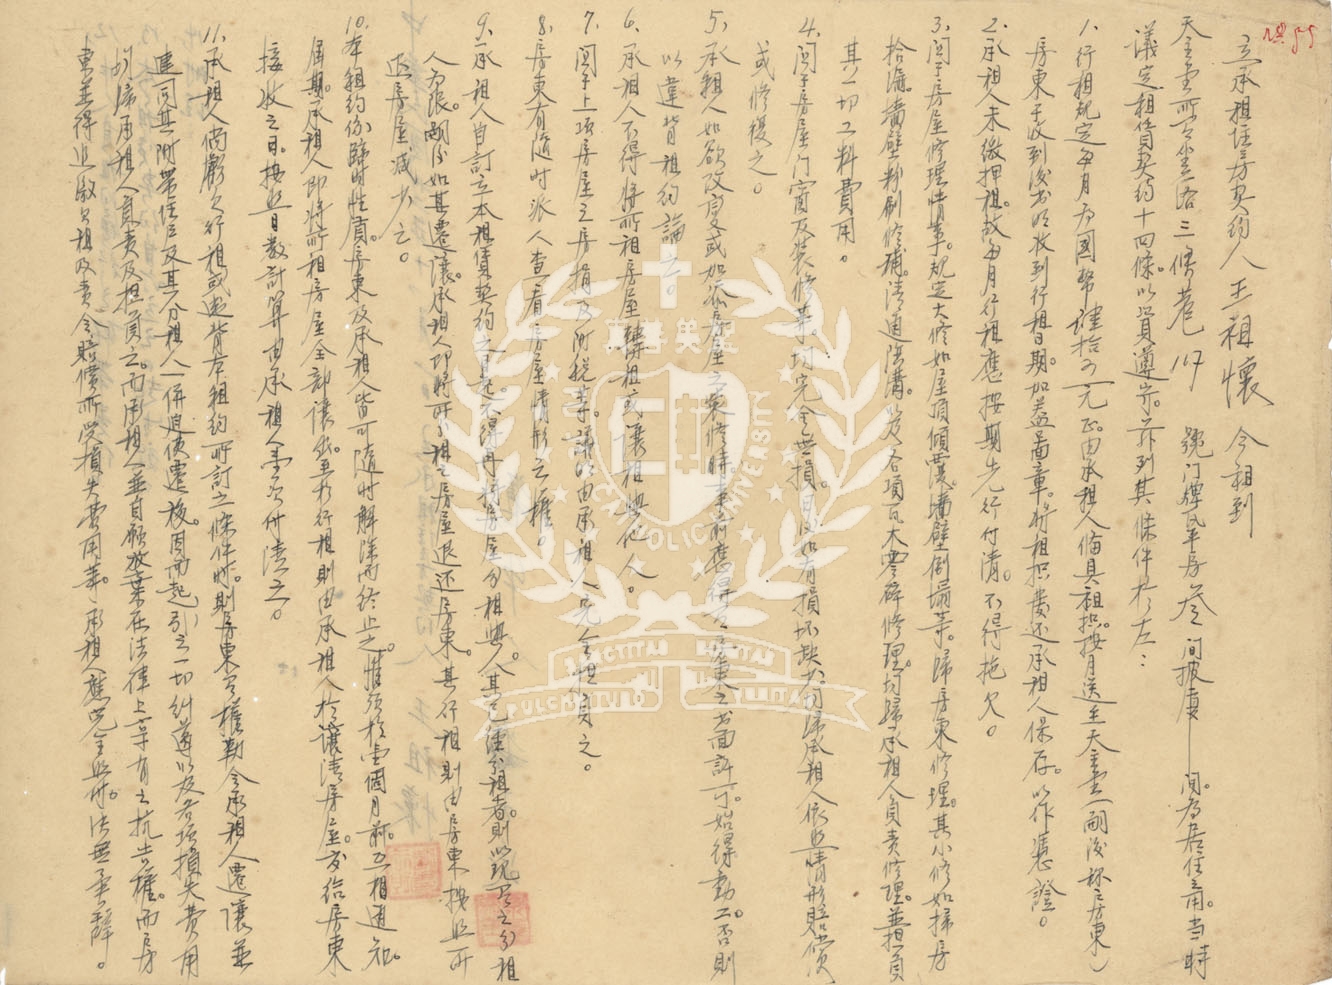 立承租住房契約人王祖懷 今租到
天主堂所有坐落三條巷117 號門牌瓦平房叁間披廈一間為居住之用。當時
議定租賃契約十四條。以資遵守。茲列其條件於左：
1. 行租規定每月為國幣 拾 元正。由承租人備具租摺。按月送至天主堂（嗣後称房東）
房東于收到後書明收到行租日期。加蓋圖章。將租摺發还承租人保存。以作憑證。
2. 承租人未繳押租。故每月行租應按期先行付清。不得拖欠。
3. 関于房屋修理情事。規定大修如屋頂傾覆。墻壁倒塌等。歸房東修理。其小修如掃房
拾漏。墻壁粉刷修補。清通溝。以及各項瓦木零碎修理。均歸承租人負責修理。並担負
其一切工料費用。
4. 関于房屋門窗及裝修等。均完全無損。日後如有損坏缺少。均歸承租人依照情形賠償
或修復之。
5. 承租人如欲改变或加添房屋之裝修時。事前應得 房東之書面許可。始得動工。否則
以違背租約論 。
6. 承租人不得將所租房屋轉租或讓租與他人。
7. 関于上項房屋之房捐及附稅等。議明由承租人完全担負之。
8. 房東有隨時派人查看房屋情形之權。
9. 承租人自訂立本租賃契約之日起不得再將房屋分租與人。其已經分租者。則以現有之分租
人為限。嗣後如其遷讓。承租人即將所分租之房屋退还房東。其行租則由房東按照所
退房屋減少之。
10. 本租約係歸時性質。房東及承租人皆可隨時解除而終止之。惟須於壹個月前。互相通知。
屆期。承租人即將所租房屋全部讓出。至於行租則由承租人於讓清房屋。交給房東
接收之日。按照日數計算由承租人 付清之。
11. 承租人倘虧欠行租或違背本租約所訂之條件時。則房東有權勒令承租人遷讓並
連同其附帶住户及其分租人一併迫使遷移。因而起引之一切糾葛以及各項損失費用
均歸承租人負責及担負之。而承租人並自願放棄在法律上享有之抗告權。而房
東並得追繳欠租及責令賠償所受損失費用等。承租人應完全照付。決無爭辯。
中華
王祖懷